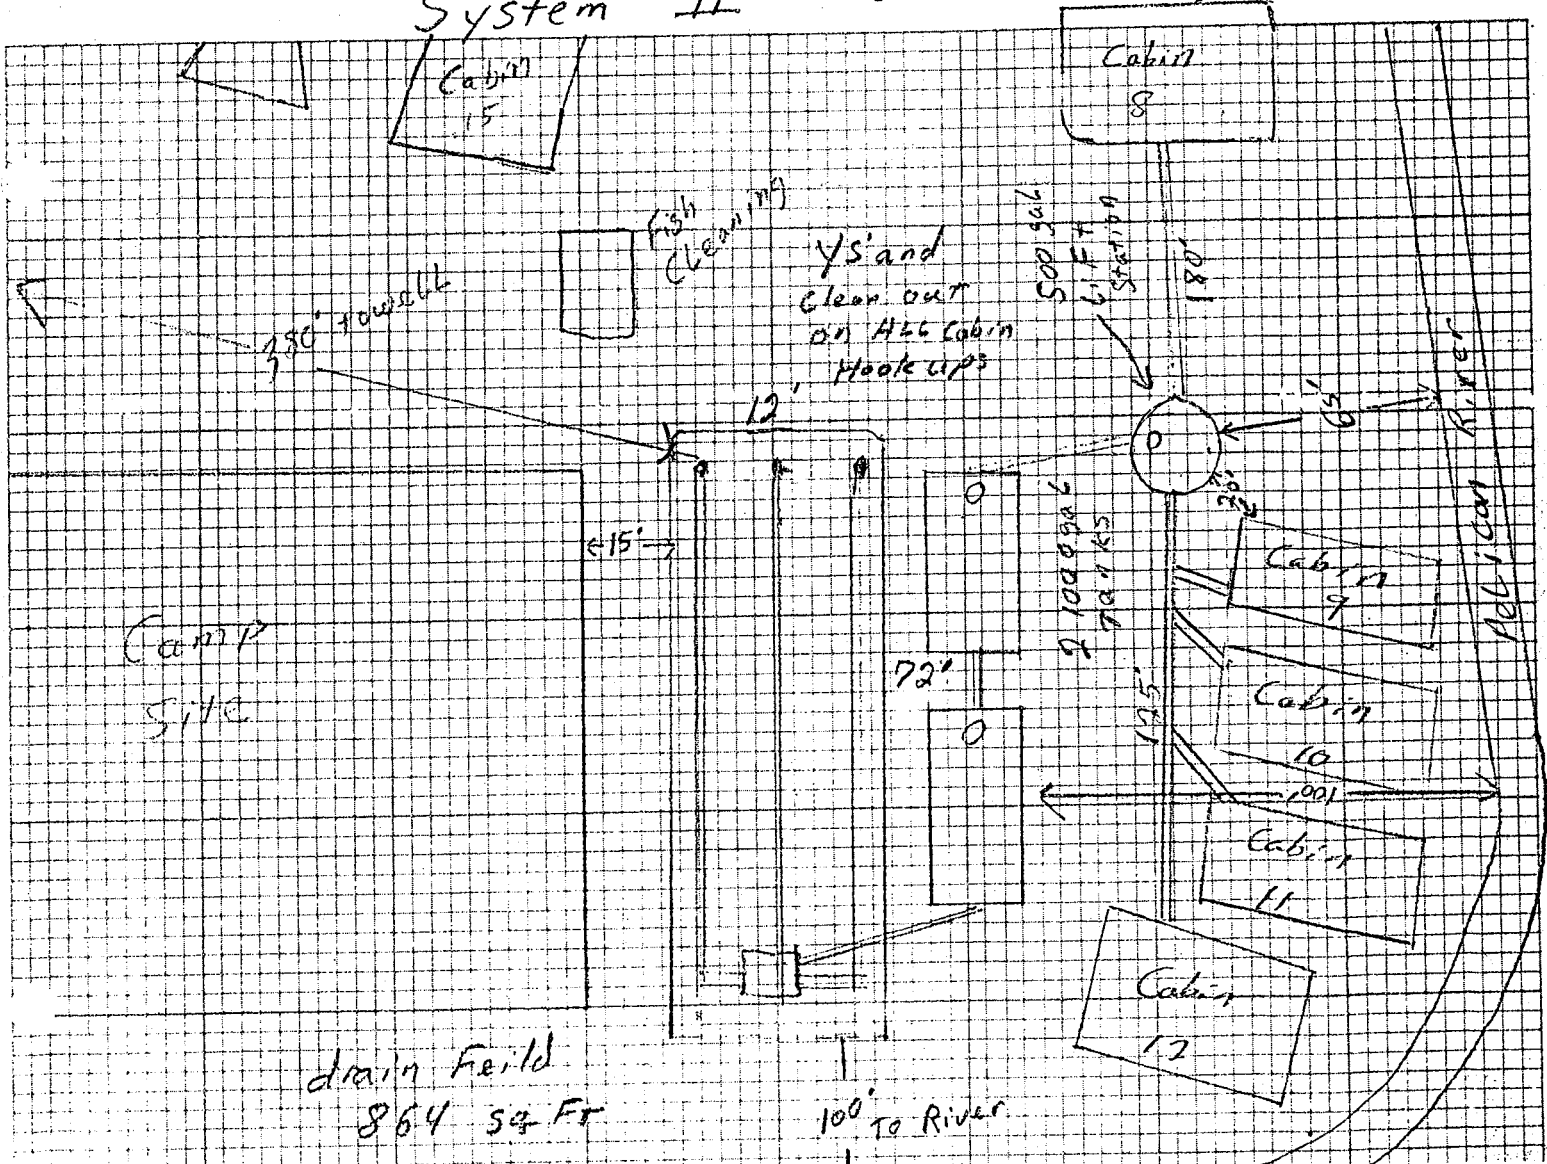 System II
Cabin
15
Cabin
8
Fish
CLeaning
Y's and
Clean out
on ALL Cabin
Hook ups
500 gal
Lift
Station
180'
380' to well
12'
65'
Pelican River
20'
15'
2 1000 gal
Tanks
Cabin
9
Camp
Site
72'
175'
Cabin
10
100'
Cabin
11
Cabin
12
drain Feild
864 sq Ft
100' To River